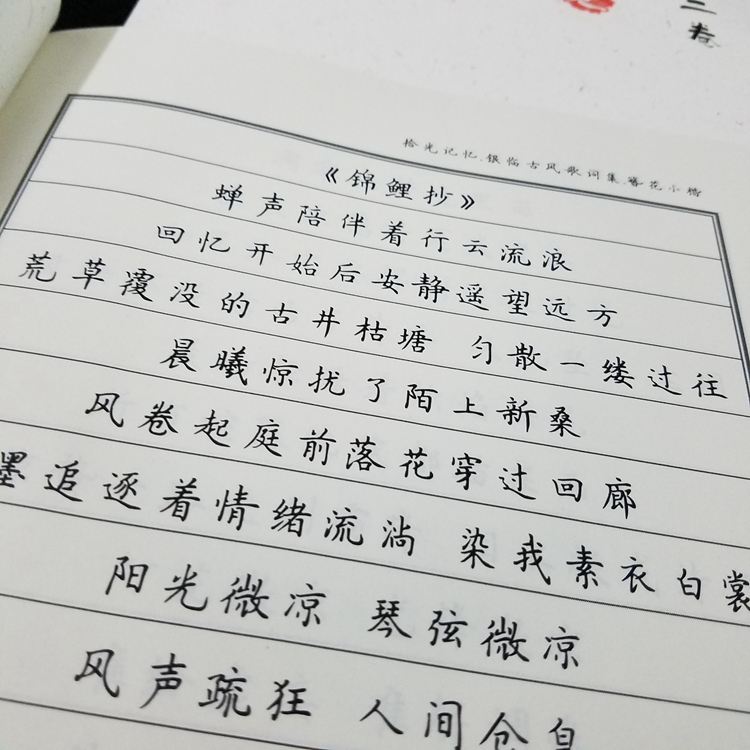 二卷
拾光记忆.银临古风歌词集.簪花小楷
《锦鲤抄》
蝉声陪伴着行云流浪
回忆开始后安静遥望远方
荒草覆没的古井枯塘 匀散一缕过往
晨曦惊扰了陌上新桑
风卷起庭前落花穿过回廊
墨追逐着情绪流淌 染我素衣白裳
阳光微凉 琴弦微凉
风声疏狂 人间仓皇